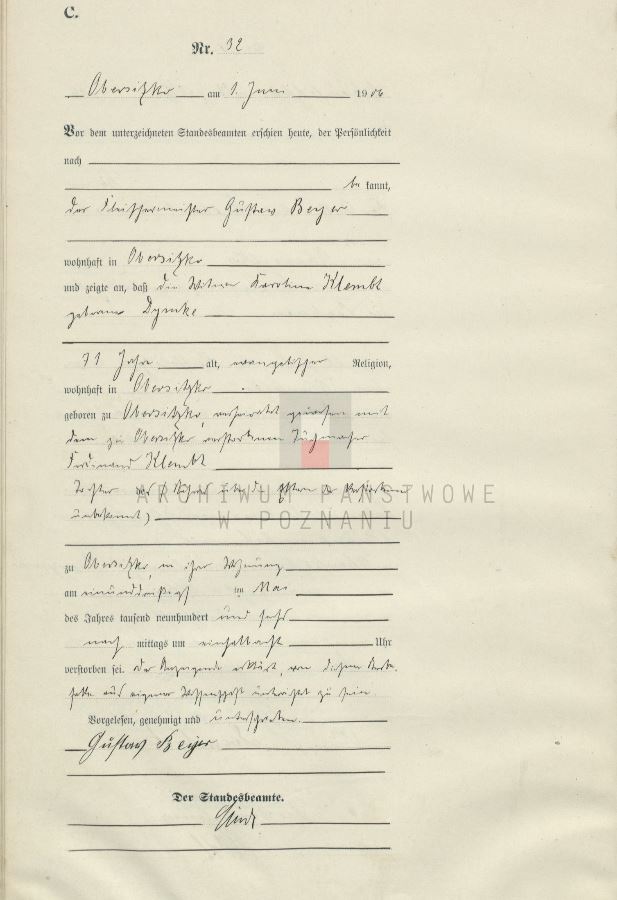 C.
Nr. 32
Obersitzko am 1. Juni 1906
Vor dem unterzeichneten Standesbeamten erschien heute, der Persönlichkeit
nach
be kannt,
der Fleischermeister Gustav Beyer
wohnhaft in Obersitzko
und zeigte an, daß die Witwe Karoline Klembt
geborene Dymke
71 Jahre alt, evangelischer Religion,
wohnhaft in Obersitzko
geboren zu Obersitzko, verheiratet gewesen mit
dem zu Obersitzko verstorbenen Tuchmacher
Ferdinand Klembt
Tochter der
ARCHIWUM PAŃSTWOWE
W POZNANIU
unbekannt)
zu Obersitzko, in ihrer Wohnung
am einunddreißigsten Mai
des Jahres tausend neunhundert und sechs
nach mittags um einhalbacht Uhr
verstorben sei. Der Anzeigende erklärt, von diesem Sterbe-
falle aus eigener Wissenschaft unterrichtet zu sein.
Vorgelesen, genehmigt und unterschrieben.
Gustav Beyer
Der Standesbeamte.